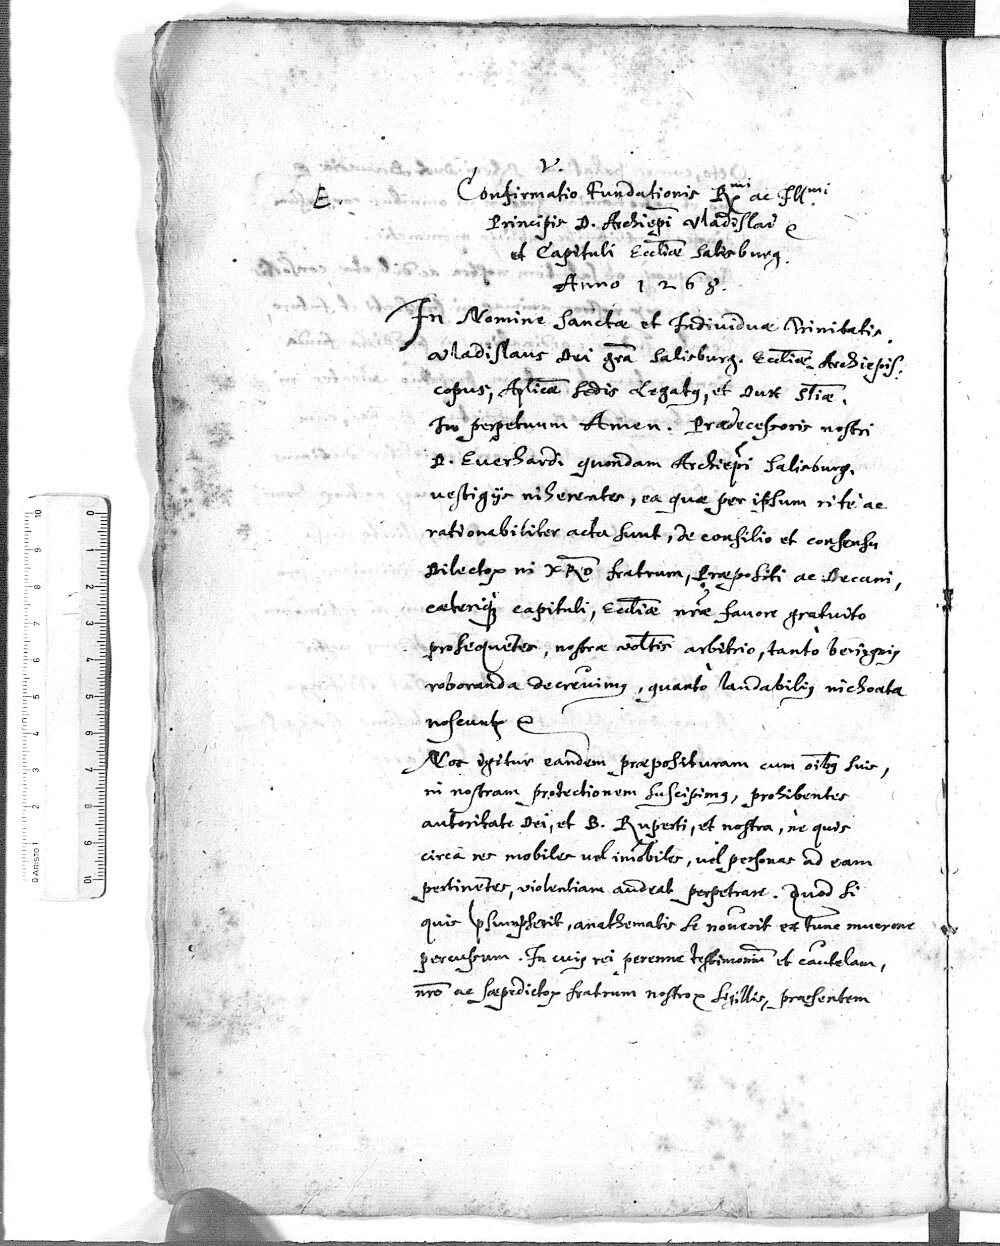 V.
E
Confirmatio Fundationis R.mi ac Ill.mi
Principis D. Archiepi Vladislai
et Capituli Eccliæ Salisburg.
Anno 1268.
In Nomine Sanctæ et Individuæ Trinitatis.
Vladislaus Dei gra Salisburg. Eccliæ Archiepis:
copus, Aplicæ Sedis Legatus, et Dux Sliæ.
In perpetuum Amen. Prædecessoris nostri
D. Everhardi quondam Archiepi Salisburg.
vestigijs inherentes, ea quæ per ipsum ritè ac
rationabiliter acta sunt, de consilio et consensu
Dilectorum in XPO fratrum, Præpositi ac Decani,
cæterique capituli, Eccliæ nræ favore gratuito
prosequentes, nostræ voltis arbitrio, tantò benignius
roboranda decrevimus, quantò laudabilius inchoata
noscuntur
Nos igitur eandem præposituram cum oibus suis,
in nostram protectionem suscipimus, prohibentes
autoritate Dei, et B. Ruperti, et nostra, ne quis
circa res mobiles vel imobiles, vel personas ad eam
pertinentes, violentiam audeat perpetrare. Quod si
quis psumpserit, anathematis se noverit ex tunc mucrone
percussum. In cuius rei perenne testimonium et cautelam,
nro ac sæpedictorum fratrum nostrorum sigillis, præsentem